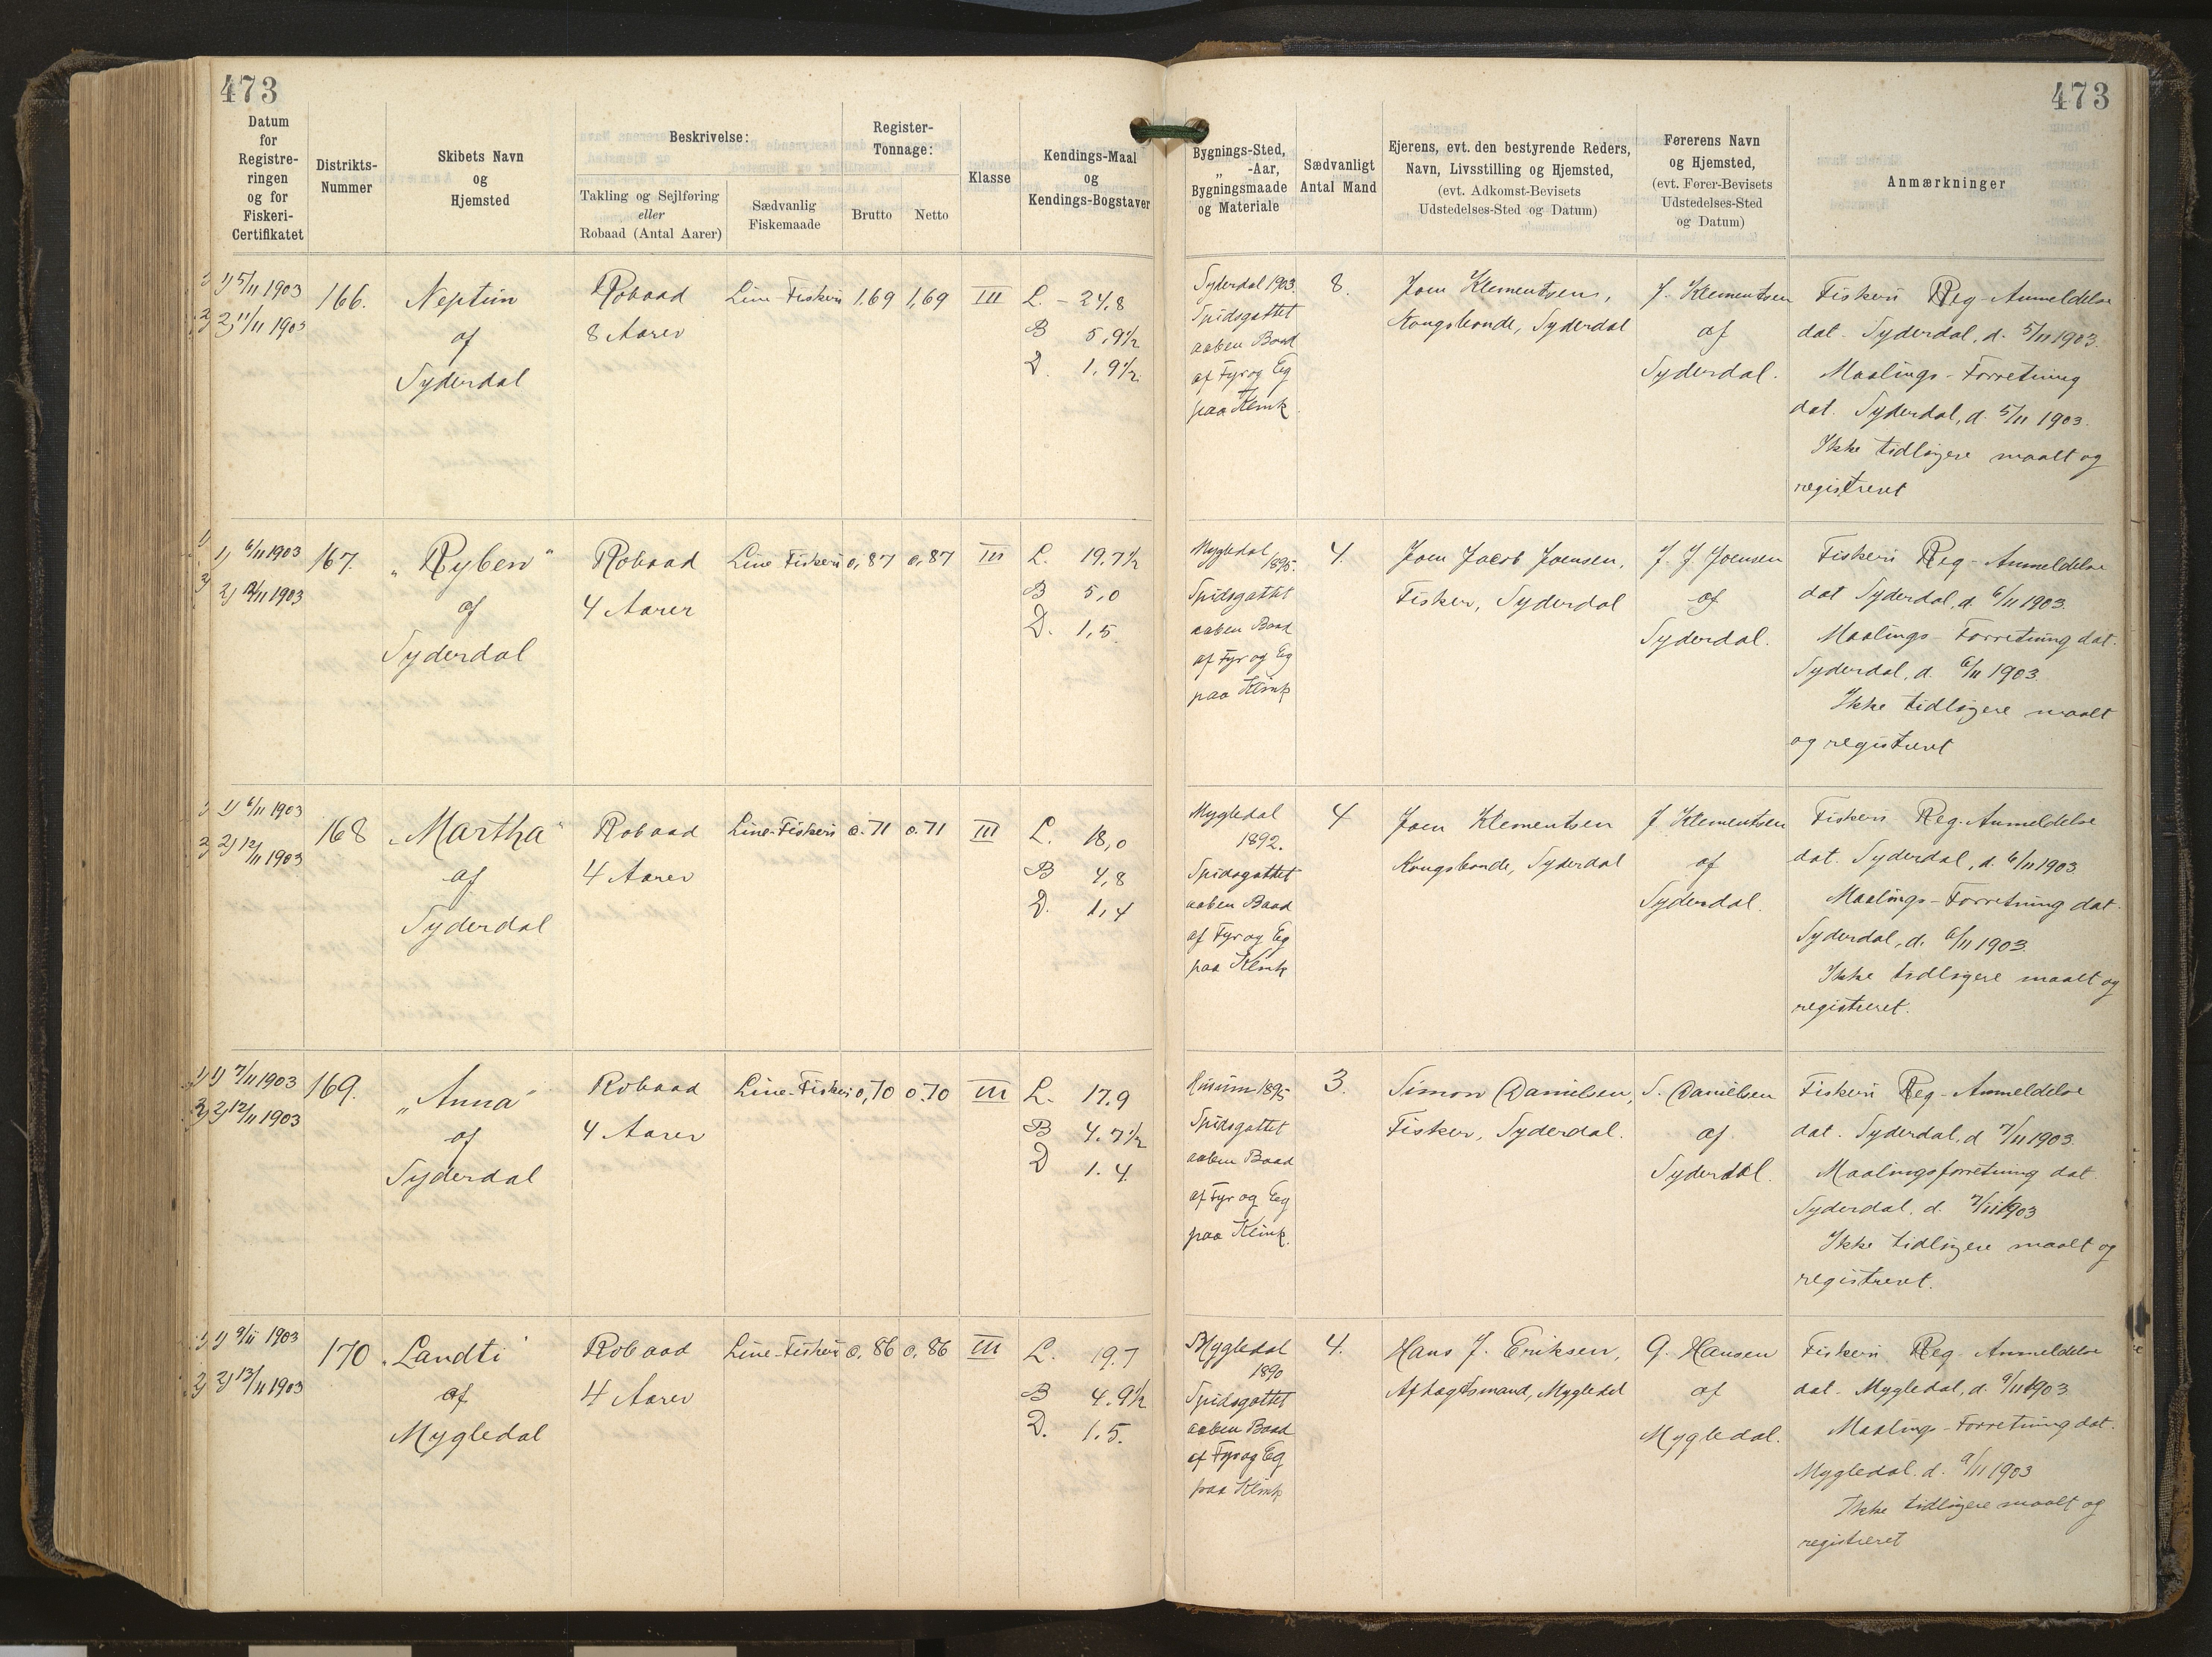 473
473
Datum for Registreringen og for Fiskeri-Certifikatet
Distrikts-Nummer
Skibets Navn og Hjemsted
Beskrivelse:
Takling og Sejlføring eller Robaad (Antal Aarer)
Sædvanlig Fiskemaade
Register-Tonnage:
Brutto
Netto
Klasse
Kendings-Maal og Kendings-Bogstaver
Bygnings-Sted, „ -Aar, Bygningsmaade og Materiale
Sædvanligt Antal Mand
Ejerens, evt. den bestyrende Reders, Navn, Livsstilling og Hjemsted, (evt. Adkomst-Bevisets Udstedelses-Sted og Datum)
Førerens Navn og Hjemsted, (evt. Fører-Bevisets Udstedelses-Sted og Datum)
Anmærkninger
1) 5/11 1903
2) 11/11 1903
166.
Neptun
af
Syderdal
Robaad
8 Aarer
Line-Fiskeri
1,69
1,69
III
L. - 24,8
B 5,9½
D. 1,9½
Syderdal 1903.
Spidsgattet
aaben Baad
af Fyr og Eg
paa Klink
8.
Joen Klementsen,
Kongsbonde, Syderdal
J. Klementsen
af
Syderdal.
Fiskeri Reg-Anmeldelse
dat. Syderdal, d. 5/11 1903.
Maalings-Forretning
dat. Syderdal, d. 5/11 1903.
Ikke tidligere maalt og
registreret
1) 6/11 1903
2) 12/11 1903
167.
„Ryben"
af
Syderdal
Robaad
4 Aarer
Line Fiskeri
0,87
0,87
III
L. 19.7½
B 5,0
D. 1,5.
Mygledal
1895.
Spidsgattet
aaben Baad
af Fyr og Eg
paa Klink
4.
Joen Jacob Joensen,
Fisker, Syderdal
J. J. Joensen
af
Syderdal.
Fiskeri Reg-Anmeldelse
dat Syderdal, d. 6/11 1903.
Maalings-Forretning dat.
Syderdal, d. 6/11 1903.
Ikke tidligere maalt
og registreret
1) 6/11 1903
2) 12/11 1903
168
„Martha"
af
Syderdal
Robaad
4 Aarer
Line-Fiskeri
0.71
0.71
III
L. 18,0
B 4,8
D. 1,4
Mygledal
1892.
Spidsgattet
aaben Baad
af Fyr og Eg
paa Klink
4
Joen Klementsen
Kongsbonde, Syderdal
J. Klementsen
af
Syderdal.
Fiskeri Reg-Anmeldelse
dat. Syderdal, d. 6/11 1903.
Maalings-Forretning dat.
Syderdal, d. 6/11 1903.
Ikke tidligere maalt og
registreret.
1) 7/11 1903
2) 12/11 1903
169.
„Anna"
af
Syderdal
Robaad
4 Aarer
Line-Fiskeri
0,70
0.70
III
L. 17.9
B 4.7½
D 1.4
Husum 1895
Spidsgattet
aaben Baad
af Fyr og Eeg
paa Klink.
3.
Simon Danielsen,
Fisker, Syderdal.
S. Danielsen
af
Syderdal.
Fiskeri Reg-Anmeldelse
dat. Syderdal, d 7/11 1903.
Maalingsforretning dat.
Syderdal. d. 7/11 1903
Ikke tidligere maalt og
registreret.
1) 9/11 1903
2) 13/11 1903
170
„Landti"
af
Mygledal
Robaad
4 Aarer
Line-Fiskeri
0,86
0,86
III
L. 19.7
B 4.9½
D. 1.5.
Mygledal
1890
Spidsgattet
aaben Baad
af Fyr og Eg
paa Klink
4.
Hans J. Eriksen,
Aftægtsmand, Mygledal
G. Hansen
af
Mygledal.
Fiskeri Reg-Anmeldelse
dat. Mygledal, d. 9/11 1903
Maalings-Forretning dat.
Mygledal. d. 9/11 1903
Ikke tidligere maalt og
registreret